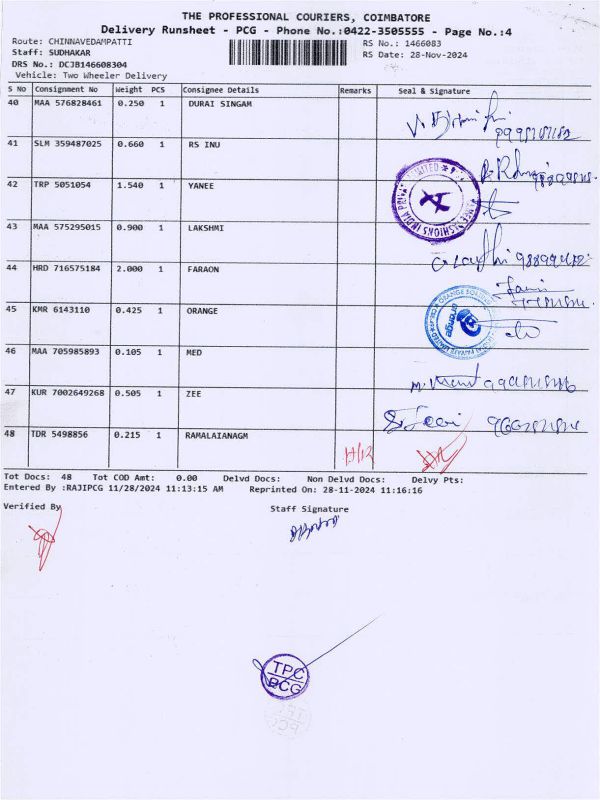 THE PROFESSIONAL COURIERS, COIMBATORE
Delivery Runsheet - PCG - Phone No.:0422-3505555 - Page No.:4
Route: CHINNAVEDAMPATTI RS No.: 1466083
Staff: SUDHAKAR RS Date: 28-Nov-2024
DRS No.: DCJB146608304
Vehicle: Two Wheeler Delivery
S No Consignment No Weight PCS Consignee Details Remarks Seal & Signature
40 MAA 576828461 0.250 1 DURAI SINGAM
41 SLM 359487025 0.660 1 RS INU
42 TRP 5051054 1.540 1 YANEE
43 MAA 575295015 0.900 1 LAKSHMI
44 HRD 716575184 2.000 1 FARAON
45 KMR 6143110 0.425 1 ORANGE
orange
46 MAA 705985893 0.105 1 MED
47 KUR 7002649268 0.505 1 ZEE
48 TDR 5498856 0.215 1 RAMALAIANAGM
Tot Docs: 48 Tot COD Amt: 0.00 Delvd Docs: Non Delvd Docs: Delvy Pts:
Entered By :RAJIPCG 11/28/2024 11:13:15 AM Reprinted On: 28-11-2024 11:16:16
Verified By Staff Signature
TPC
PCG